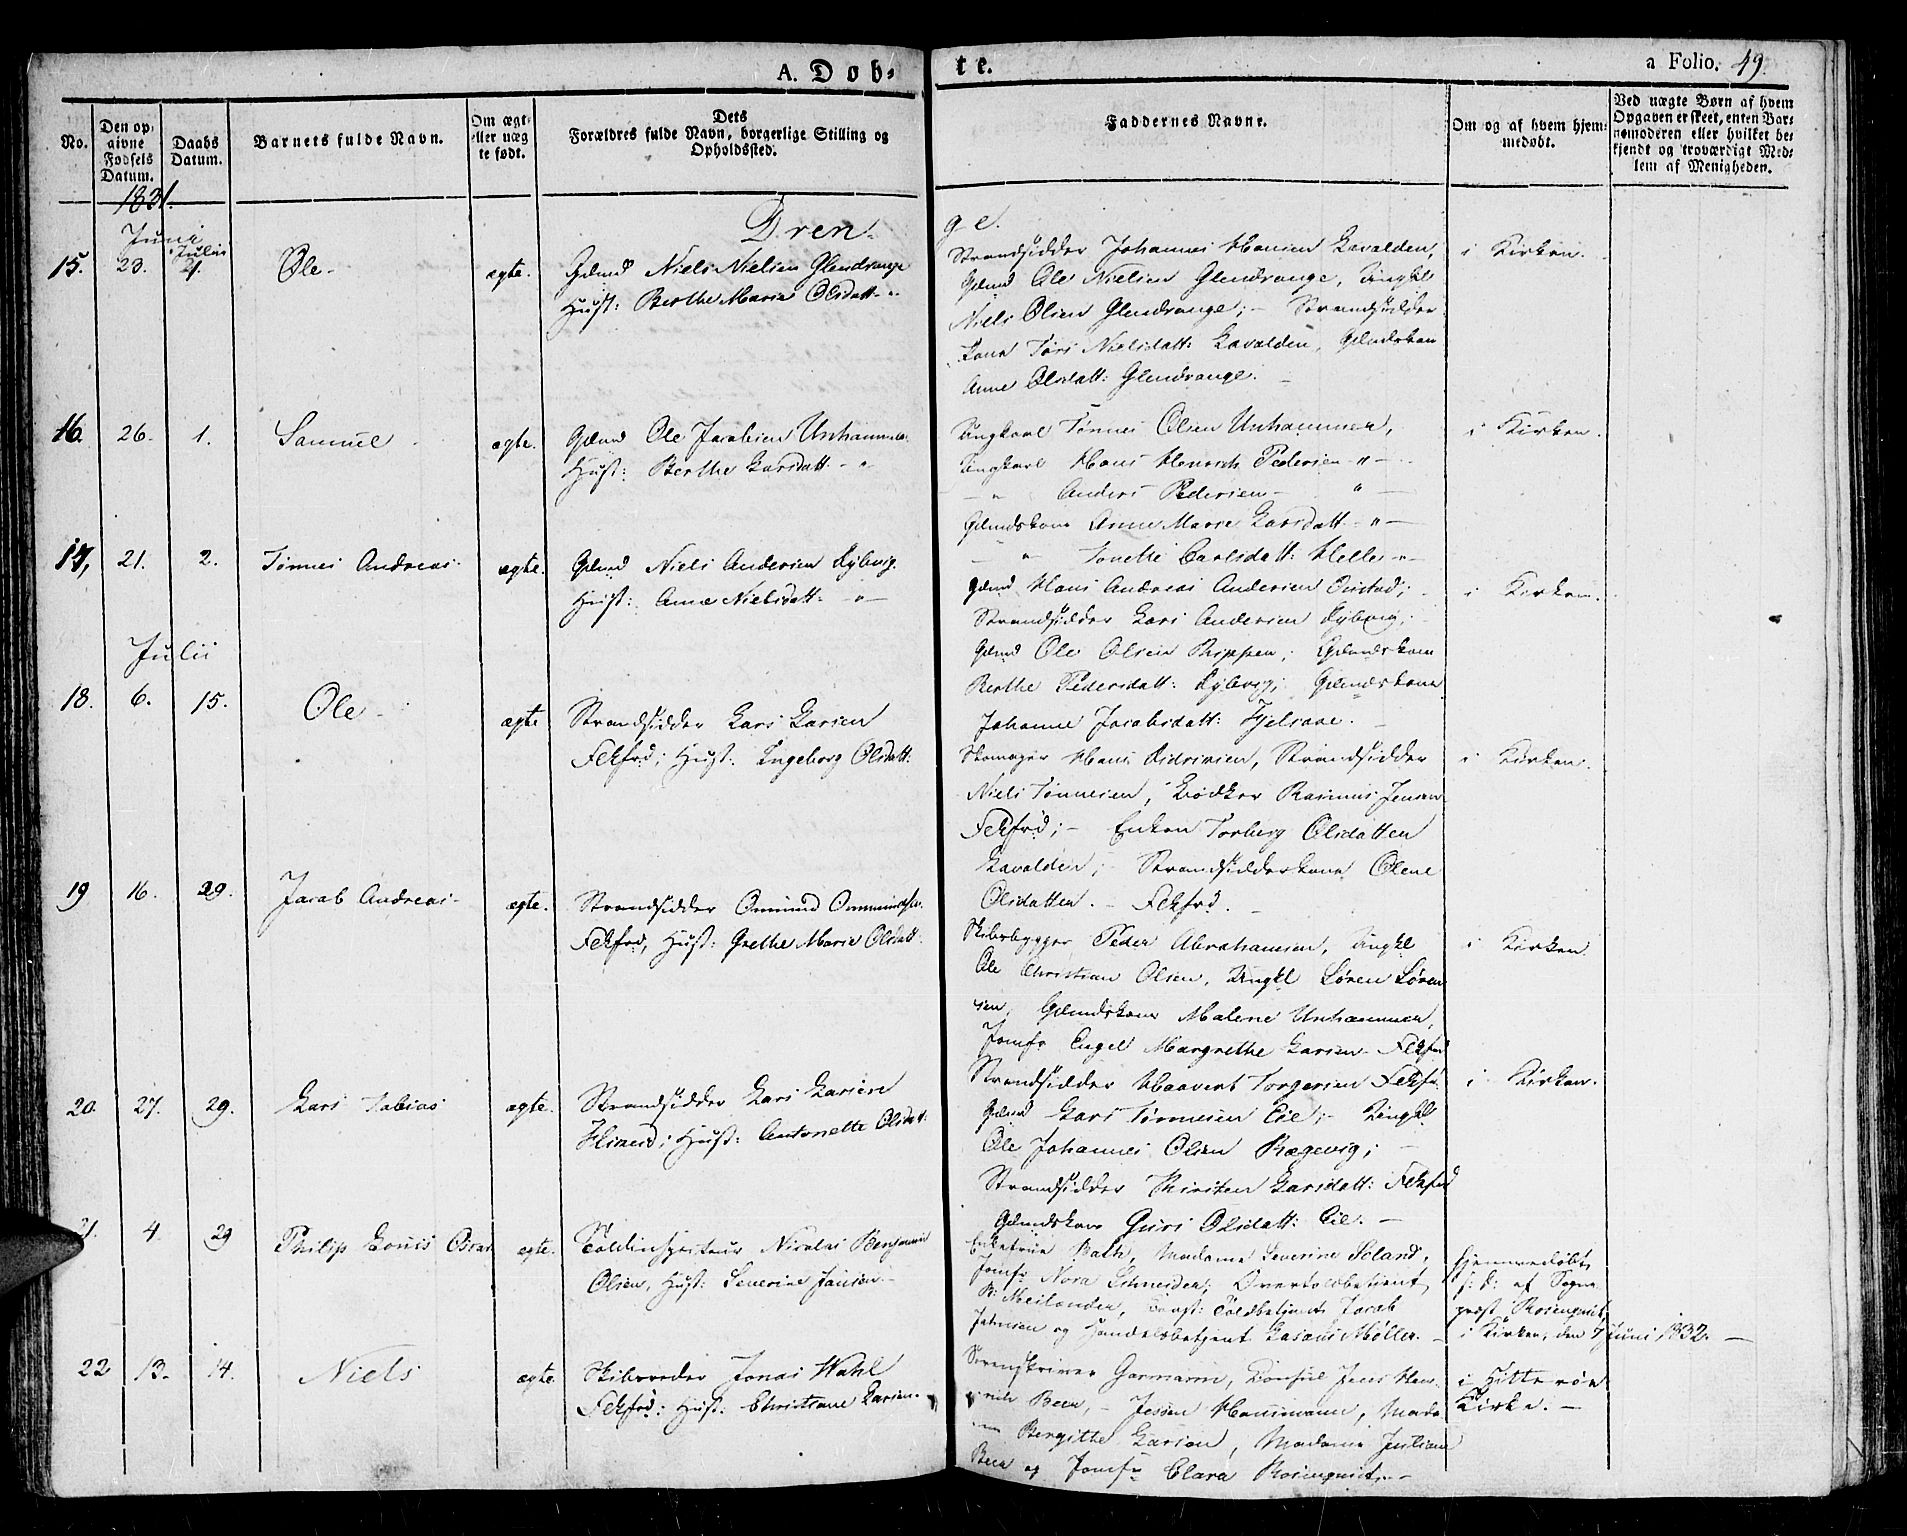 A. Døb-
te.
a Folio. 49.
No.
Den op-
givne
Fødsels
Datum.
Daabs
Datum.
Barnets fulde Navn.
Om ægte
eller uæg
te født.
Dets
Forældres fulde Navn, borgerlige Stilling og
Opholdssted.
Faddernes Navne.
Om og af hvem hjem-
medøbt.
Ved uægte Børn af hvem
Opgaven er skeet, enten Bar-
nemoderen eller hvilket be-
kjendt og troværdigt Med-
lem af Menigheden.
1831.
Dren-
ge.
Juni
Julii
15. 23. 21. Ole ægte. Gdmd Niels Nielsen Glendrange
Hust: Berthe Marie Olsdatt
Strandsidder Johannes Hansen Lavolden, i Kirken.
Gdmd Ole Nielsen Glendrange, Ungkl
Niels Olsen Glendrange; – Strandsidder
kone Tori Nielsdatt: Lavolden, Gdmdskone
Anne Olsdatt: Glendrange. –
16. 26. 1. Samuel ægte. Gdmd Ole Jacobsen Urhammer
Hust: Berthe Larsdatt – " –
Ungkarl Tønnes Olsen Urhammer, i Kirken.
Ungkarl Hans Henrich Pedersen – " –
– " Anders Pedersen – " –
Gdmdskone Anne Marie Larsdatt – " –
– " Tonette Carlsdatt: Helle – " –
17, 21. 2. Tønnes Andreas ægte. Gdmd Niels Andersen Dybvig.
Hust: Anne Nielsdatt: – " –
Gdmd Hans Andreas Andersen Onstad; i Kirken.
Strandsidder Lars Andersen Dybvig,
Gdmd Ole Olsen Rippen; Gdmdskone
Berthe Pedersdatt: Dybvig; Gdmdskone
Johanne Jacobsdatt: Fjelsaae. –
Julii
18. 6. 15. Ole ægte Strandsidder Lars Larsen
Fekfrd; Hust: Ingeborg Olsdatt:
Skomager Hans Didriksen, Strandsidder i Kirken.
Niels Tønnesen, Bødker Rasmus Jensen
Fekfrd; – Enken Torberg Olsdatten
Lavolden; – Strandsidderkone Olene
Olsdatten. – Fekfrd. –
19 16. 29. Jacob Andreas ægte. Strandsidder Omund Ommundsen
Fekfrd, Hust: Grethe Marie Olsdatt.
Skibsbygger Peder Abrahamsen, Ungkl i Kirken.
Ole Christian Olsen, Ungkl Søren Søren
sen, Gdmdskone Malene Urhammer,
Jomfr Engel Margrethe Larsen – Fekfrd
20. 27. 29. Lars Tobias ægte. Strandsidder Lars Larsen
Hust: Antonette Olsdatt:
Strandsidder Haavert Torgersen Fekfr. i Kirken.
Gdmd Lars Tønnesen Eie; – Ungkl
Ole Johannes Olsen Rægevig;
Strandsidder Kirsten Larsdatt: Fekfrd
Gdmdskone Guri Olsdatt: Eie. –
21. 4 29 Philip Louis Oscar ægte. Toldinspecteur Nicolai Benjamin
Olsen, Hust: Severine Jansen. –
Enkefrue Bath, Madame Severine Soland,
Jomfr Nora Schneider, Overtoldbetjent,
B: Meilænder, Const: Toldbetjent Jacob
Jahnsen og Handelsbetjent Møller. –
hjemmedøbt,
s: d: af Sogne
præst Rosenqvist,
i Kirken, den 7 Juni 1832. –
22 13. 14. Niels ægte. Skibsreder Jonas Wahl
Fekfrd; Hust: Christiane Larsen. –
Sorenskriver Garmann, Consul Jens Hen- i Hitterøe
rich Beer, – Jessen Hanimann, Mada- Kirke. –
me Bergithe Larsen, Madame Juliane
Beer og Jomfr Clara Rosenqvist, –